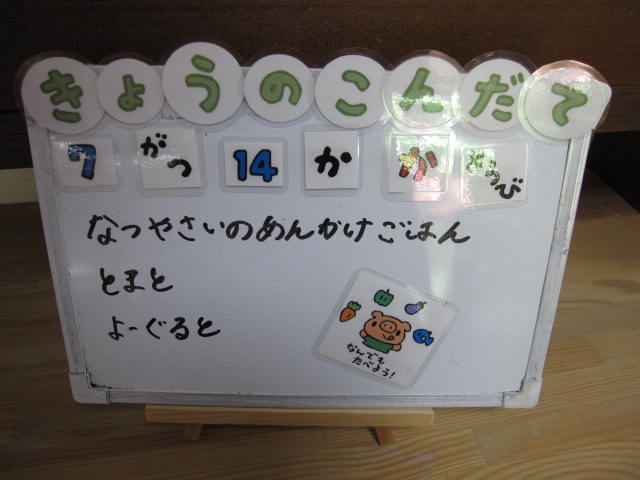 きょうのこんだて
7 がつ 14 か ようび
なつやさいのめんかけごはん
とまと
よーぐると
なんでも
たべよう!